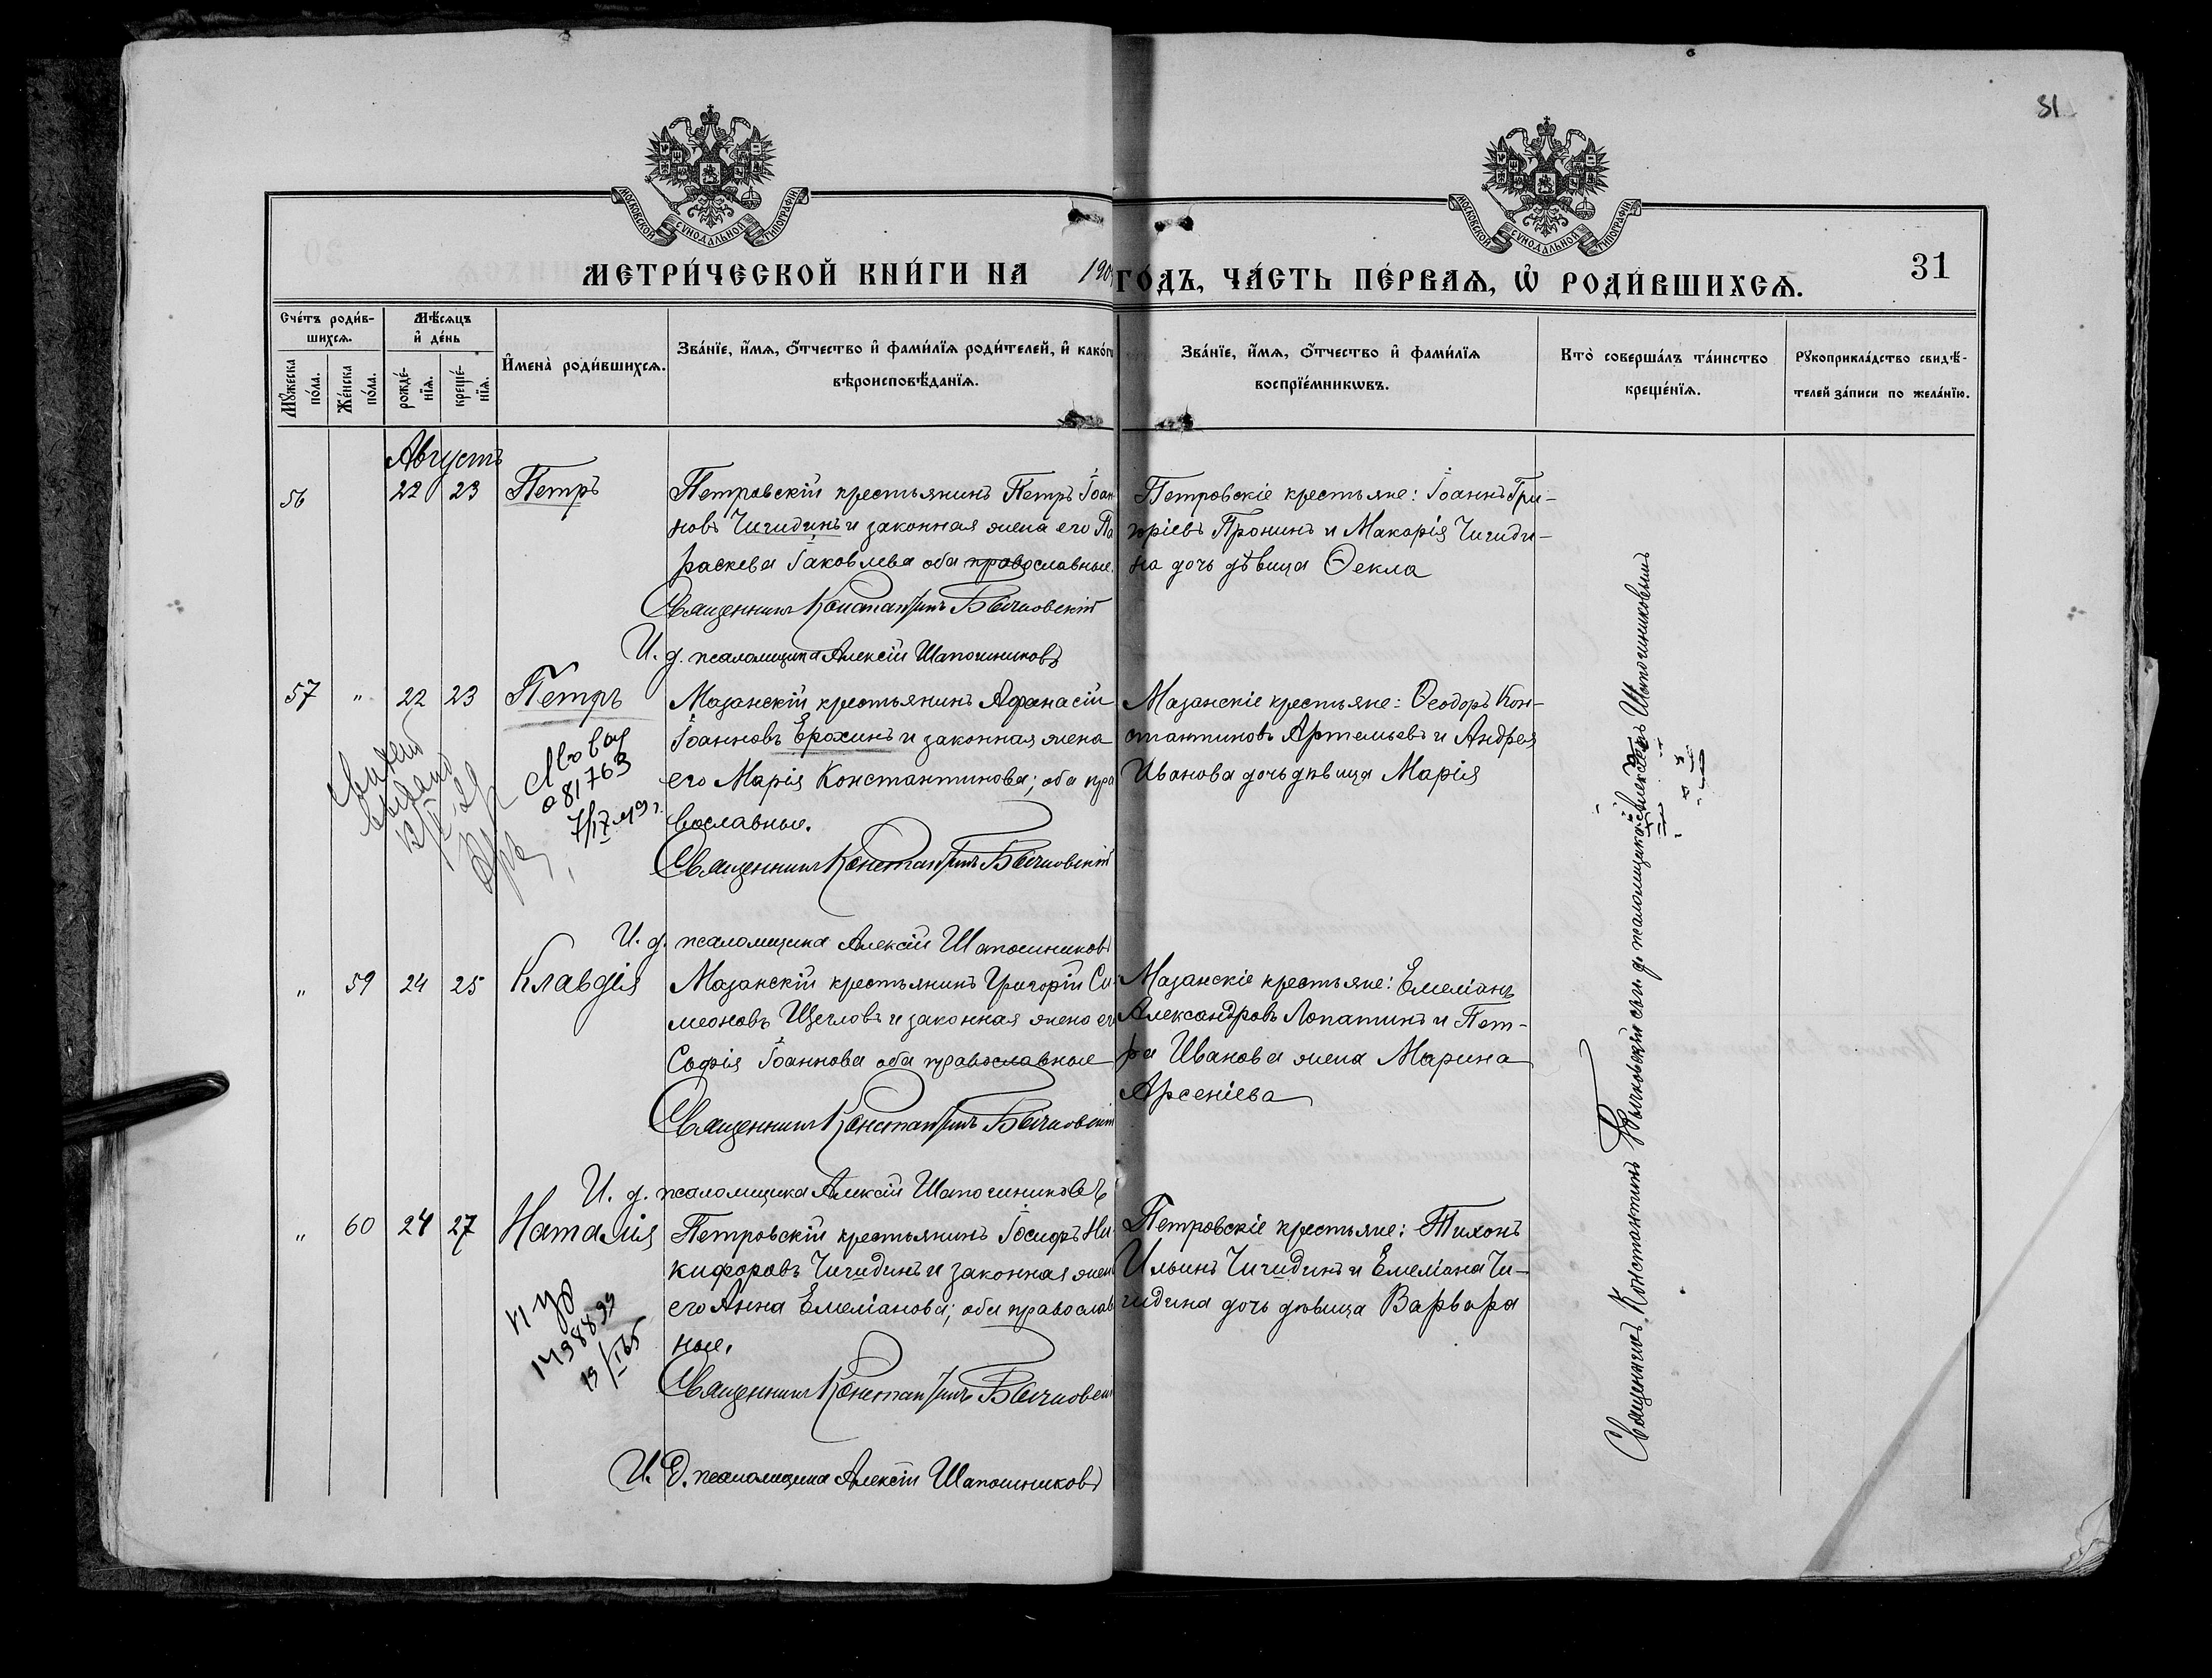 31
МОСКОВСКОЙ СѴНОДАЛЬНОЙ ТИПОГРАФІИ
МОСКОВСКОЙ СѴНОДАЛЬНОЙ ТИПОГРАФІИ
МЕТРИ́ЧЕСКОЙ КНИ́ГИ НА 190 ГО́ДЪ, ЧА́СТЬ ПЕ́РВАѦ, Ѽ РОДИ́ВШИХСѦ.
31
Сче́тъ роди́в-
шихсѧ.
Мѣ́сѧцъ
и҆ де́нь
Мꙋ́жеска по́ла.
Же́нска по́ла.
рожде́-
нїѧ.
креще́-
нїѧ.
И҆мена̀ роди́вшихсѧ.
Зва́нїе, и҆́мѧ, ѻ҆́тчество и҆ фами́лїѧ роди́телей, и҆ како́гѡ
вѣроисповѣ́данїѧ.
Зва́нїе, и҆́мѧ, ѻ҆́тчество и҆ фами́лїѧ
воспрїе́мникѡвъ.
Кто̀ соверша́лъ та́инство
креще́нїѧ.
Рꙋкоприкла́дство свидѣ́-
телей за́писи по жела́нїю.
Августъ
56 22 23 Петръ
Петровскій крестьянинъ Петръ Іоан
новъ Чигидинъ и законная жена его Па
раскева Іаковлева оба православные.
Священникъ Константинъ Бычковскій
И. д. псаломщика Алексій Шапошниковъ
Петровскіе крестьяне: Іоаннъ Гри-
горіевъ Пронинъ и Макарія Чигиди-
на дочь дѣвица Ѳекла
57 " 22 23 Петръ
Львов
081763
Мазанскій крестьянинъ Афанасій
Іоанновъ Ерохинъ и законная жена
его Марія Константинова; оба пра
вославные.
Священникъ Константинъ Бычковскій
И. д. псаломщика Алексій Шапошниковъ
Мазанскіе крестьяне: Ѳеодоръ Кон-
стантиновъ Артемьевъ и Андрея
Иванова дочь дѣвица Марія
" 59 24 25 Клавдія
Мазанскій крестьянинъ Григорій Си
меоновъ Щегловъ и законная жена его
Софія Іоаннова оба православные
Священникъ Константинъ Бычковскій
И. д. псаломщика Алексій Шапошниковъ
Мазанскіе крестьяне: Емеліанъ
Александровъ Лопатинъ и Пет-
ра Иванова жена Марина
Арсеніева
" 60 24 27 Наталія
1498899
Петровскій крестьянинъ Іосифъ Ни
кифоровъ Чигидинъ и законная жен
его Анна Емеліанова; оба православ
ные.
Священникъ Константинъ Бычковскій
И. Д. псаломщика Алексій Шапошниковъ
Петровскіе крестьяне: Тихонъ
Ильинъ Чигидинъ и Емеліана Чи-
гидина дочь дѣвица Варвара
Священникъ Константинъ Бычковскій съ и. д. псаломщика Алексіемъ Шапошниковымъ